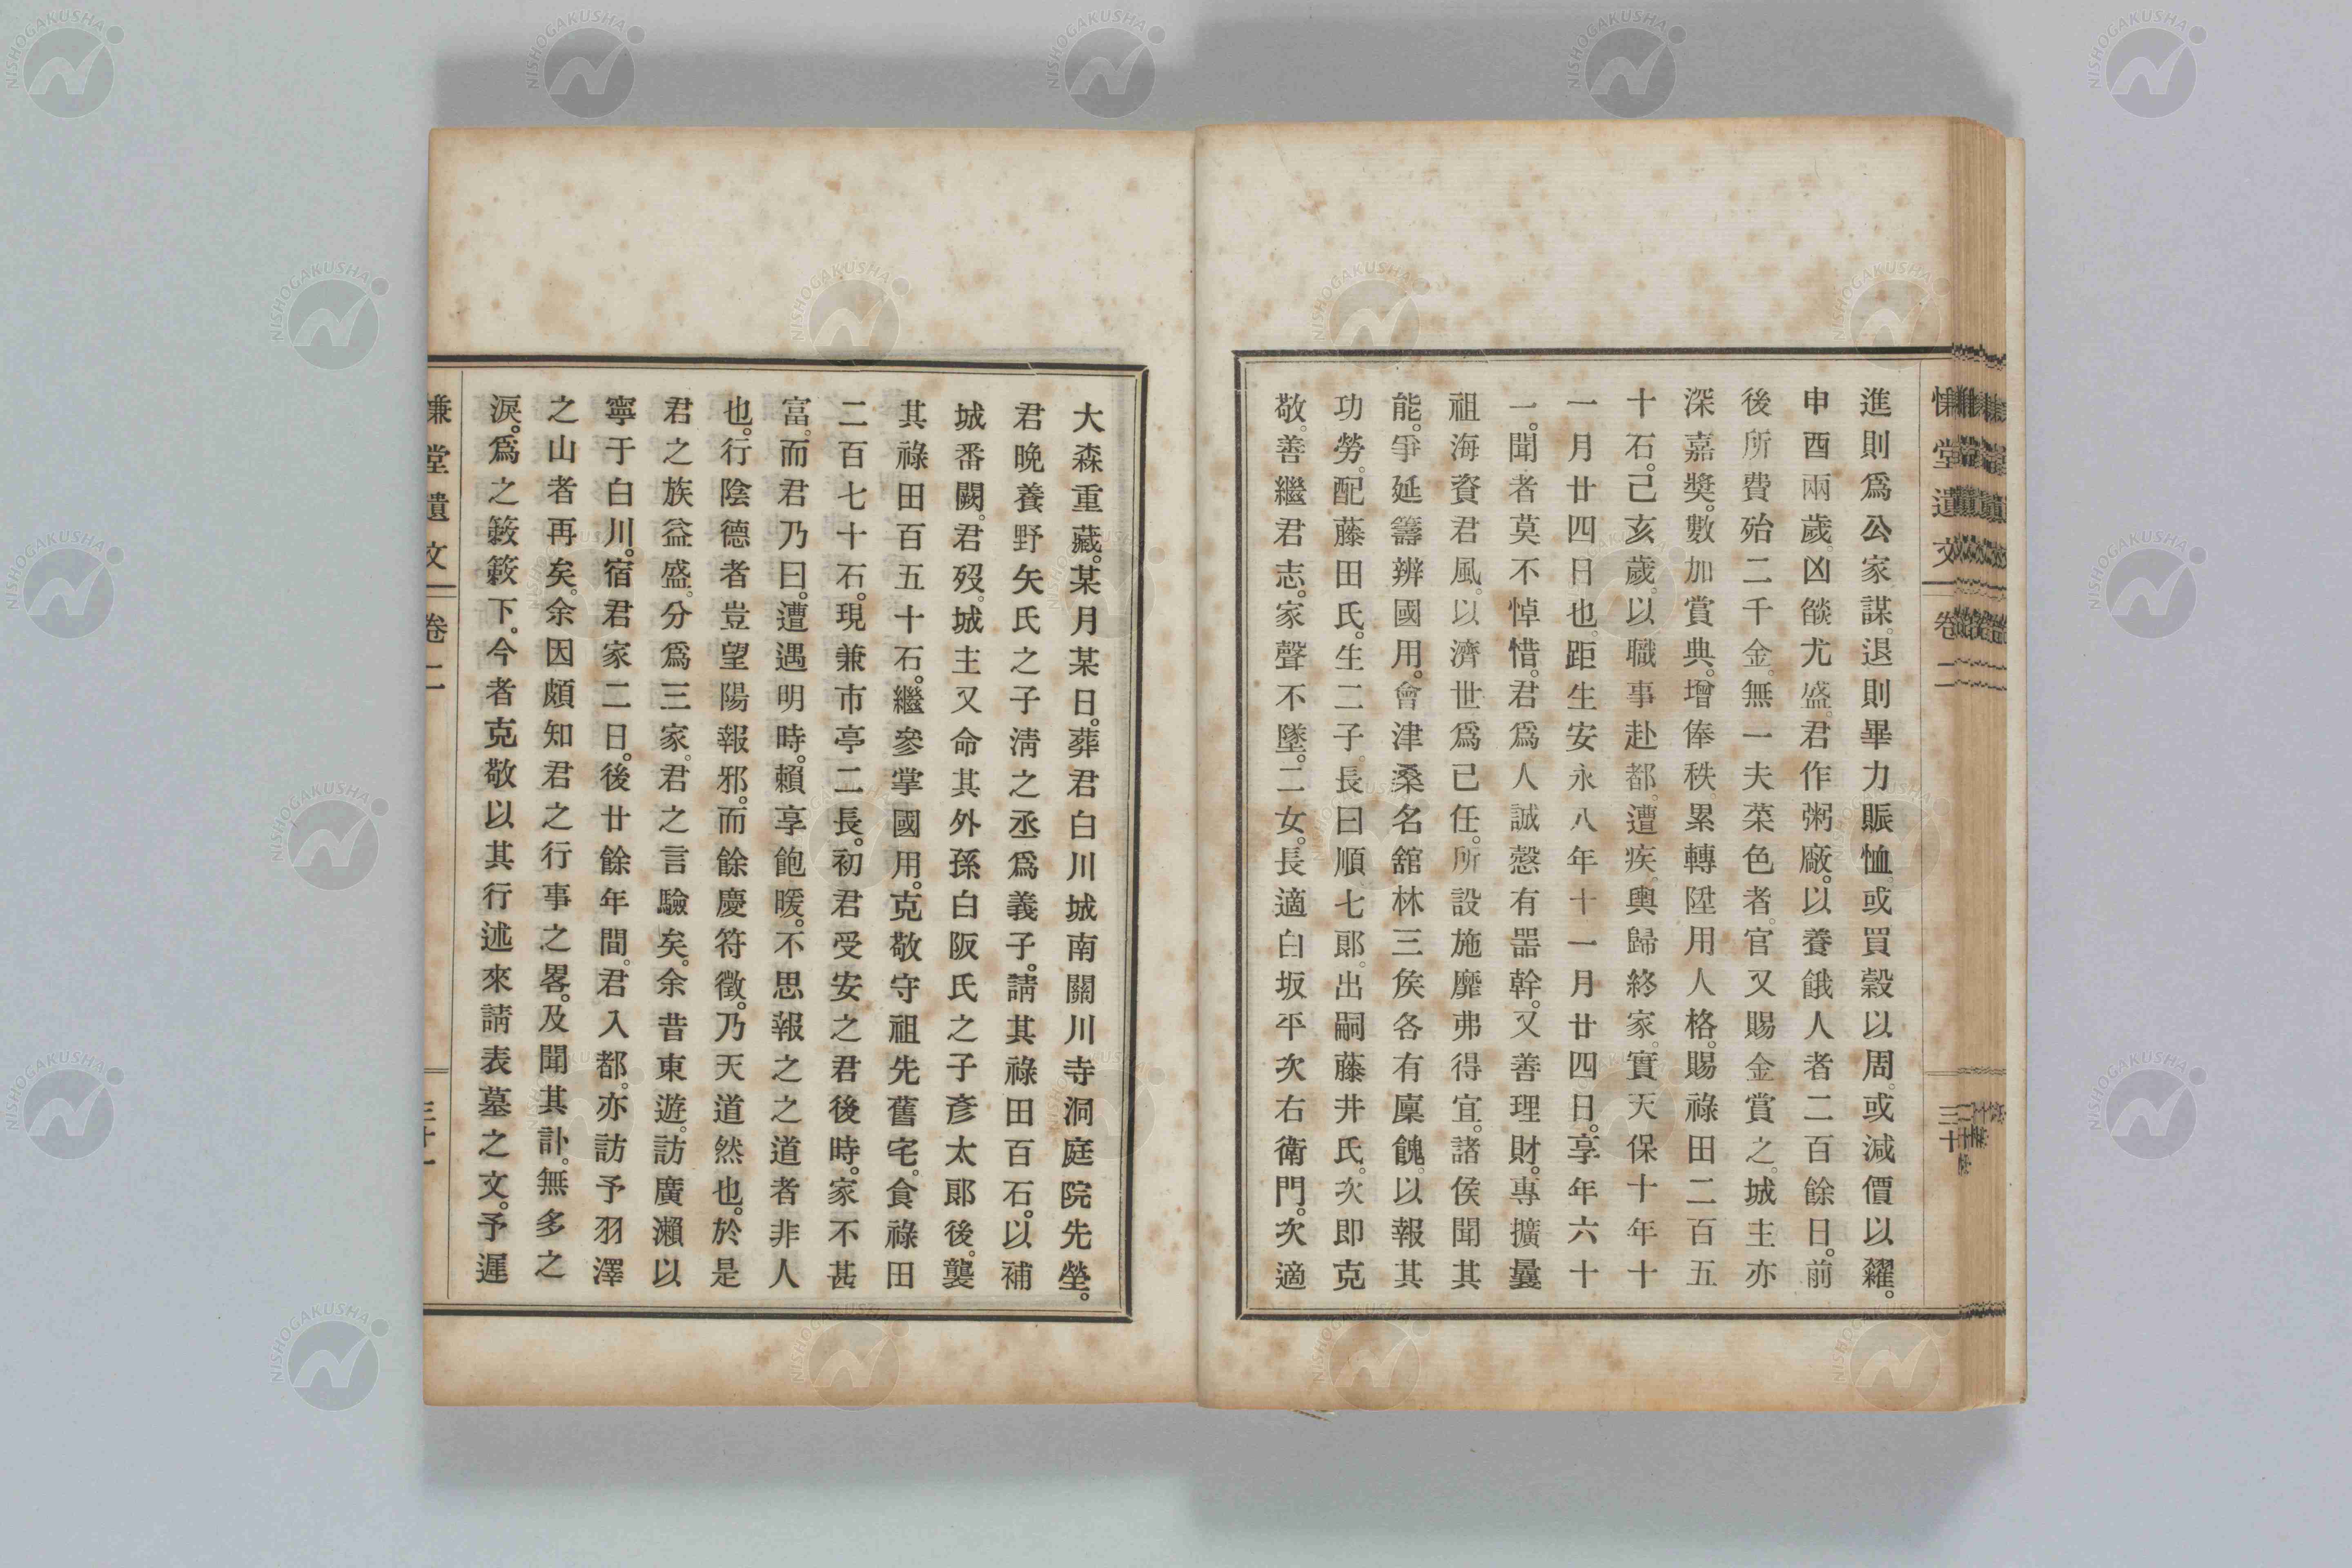 慊堂遺文 卷二 三十
進則爲公家謀。退則畢力賑恤。或買穀以周。或減價以糶。
申酉兩歲。凶燄尤盛。君作粥廠。以養餓人者二百餘日。前
後所費殆二千金。無一夫菜色者。官又賜金賞之。城主亦
深嘉奬。數加賞典。增俸秩。累轉陞用人格。賜祿田二百五
十石。己亥歲。以職事赴都。遭疾。輿歸終家。實天保十年十
一月廿四日也。距生安永八年十一月廿四日。享年六十
一。聞者莫不悼惜。君爲人誠愨有噐幹。又善理財。專擴曩
祖海資君風。以濟世爲己任。所設施靡弗得宜。諸侯聞其
能。爭延籌辨國用。會津桑名舘林三矦各有廩餽。以報其
功勞。配藤田氏。生二子。長曰順七郎。出嗣藤井氏。次即克
敬。善繼君志。家聲不墜。二女。長適白坂平次右衛門。次適
大森重藏。某月某日。葬君白川城南關川寺洞庭院先塋。
君晩養野矢氏之子淸之丞爲義子。請其祿田百石。以補
城番闕。君歿。城主又命其外孫白阪氏之子彥太郎後。襲
其祿田百五十石。繼參掌國用。克敬守祖先舊宅。食祿田
二百七十石。現兼市亭二長。初君受安之君後時。家不甚
富。而君乃曰。遭遇明時。賴享飽暖。不思報之之道者非人
也。行陰德者豈望陽報邪。而餘慶符徵。乃天道然也。於是
君之族益盛。分爲三家。君之言驗矣。余昔東遊。訪廣瀨以
寧于白川。宿君家二日。後廿餘年間。君入都。亦訪予羽澤
之山者再矣。余因頗知君之行事之畧。及聞其訃。無多之
淚。爲之簌簌下。今者克敬以其行述來請表墓之文。予遲
慊堂遺文 卷二 三十一
NISHOGAKUSHA